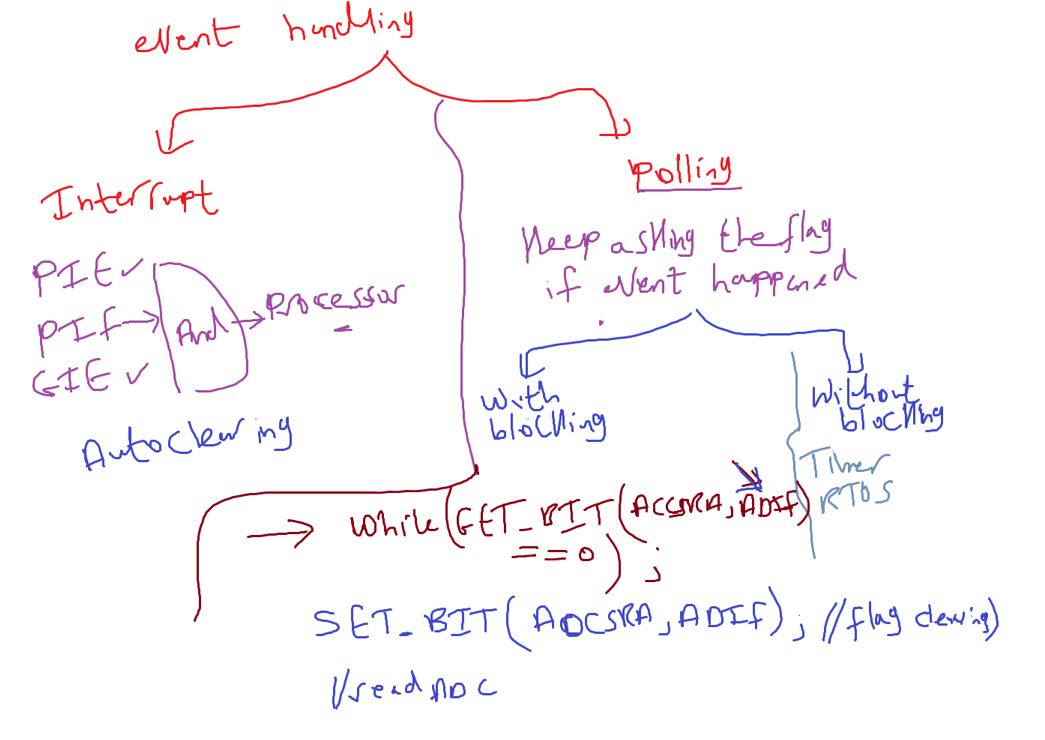 event handling
Interrupt
PIE ✓
PIF
And
Processor
GIE ✓
Autoclearing
Polling
Keep asking the flag
if event happened
With
blocking
Without
blocking
Timer
RTOS
while(GET_BIT(ACCSRA,ADIF)
==0) ;
SET_BIT(ADCSRA,ADIF); //flag clearing)
//read ADC